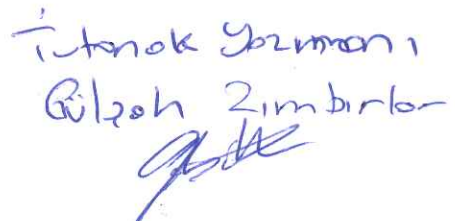 Tutanak Yazmanı
Gülşah Zımbırlar